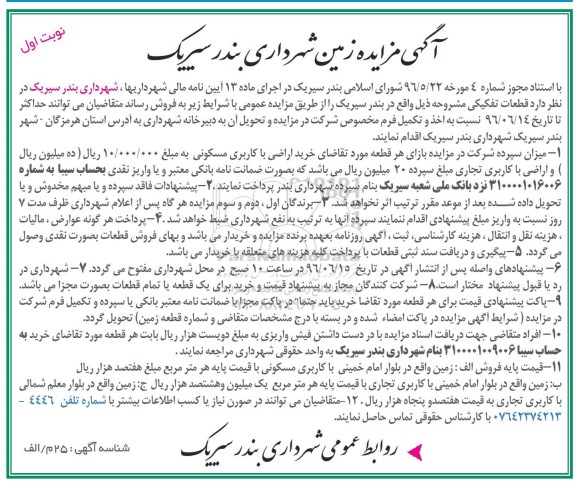 نوبت اول
آگهی مزایده زمین شهرداری بندر سیریک
با استناد مجوز شماره ٤ مورخه ۹۶/۵/۲۲ شورای اسلامی بندر سیریک در اجرای ماده ۱۳ آیین نامه مالی شهرداریها ، شهرداری بندر سیریک در
نظر دارد قطعات تفکیکی مشروحه ذیل واقع در بندر سیریک را از طریق مزایده عمومی با شرایط زیر به فروش رساند متقاضیان می توانند حداکثر
تا تاریخ ۹۶/۰۶/۱۴ نسبت به اخذ و تکمیل فرم مخصوص شرکت در مزایده و تحویل آن به دبیرخانه شهرداری به آدرس استان هرمزگان - شهر
بندر سیریک شهرداری بندر سیریک اقدام نمایند.
۱-میزان سپرده شرکت در مزایده بازای هر قطعه مورد تقاضای خرید اراضی با کاربری مسکونی به مبلغ ۱۰/۰۰۰/۰۰۰ ریال ( ده میلیون ریال
) و اراضی با کاربری تجاری مبلغ سپرده ۲۰ میلیون ریال می باشد که بصورت ضمانت نامه بانکی معتبر و یا واریز نقدی بحساب سیبا به شماره
۳۱۰۰۰۰۱۰۱۶۰۰۶ نزد بانک ملی شعبه سیریک بنام سپرده شهرداری بندر پرداخت نمایند. ۲-پیشنهادات فاقد سپرده و یا مبهم مخدوش و یا
تحویل داده شده بعد از موعد مقرر ترتیب اثر نخواهد شد. ۳-برندگان اول ، دوم و سوم مزایده هر گاه پس از اعلام شهرداری ظرف مدت ۷
روز نسبت به واریز مبلغ پیشنهادی اقدام ننمایند سپرده آنها به ترتیب به نفع شهرداری ضبط خواهد شد .۴-پرداخت هر گونه عوارض ، مالیات
، هزینه نقل و انتقال ، هزینه کارشناسی، ثبت ، آگهی روزنامه بعهده برنده مزایده و خریدار می باشد و بهای فروش قطعات بصورت نقدی وصول
می گردد. ۵-پیگیری و دریافت سند ثبتی قطعات با پرداخت کلیه هزینه های متعلقه با خریدار می باشد.
۶- پیشنهادهای واصله پس از انتشار آگهی در تاریخ ۹۶/۰۶/۱۵ در ساعت ۱۰ صبح در محل شهرداری مفتوح می گردد. ۷-شهرداری در
رد یا قبول پیشنهاد مختار است.۸- شرکت کنندگان مجاز به پیشنهاد قیمت و خرید برای یک قطعه یا تمام قطعات بصورت مجزا می باشد.
۹-پاکت پیشنهادی قیمت برای هر قطعه مورد تقاضا خرید باید جدا در پاکت مجزا با ضمانت نامه معتبر بانکی یا سپرده و تکمیل فرم شرکت
در مزایده ( شرایط آگهی مزایده در پاکت امضاء شده و در بسته با درج مشخصات متقاضی و شماره قطعه زمین) تحویل گردد.
۱۰- افراد متقاضی جهت دریافت اسناد مزایده با در دست داشتن فیش واریزی به مبلغ دویست هزار ریال بابت هر قطعه مورد تقاضای خرید به
حساب سیبا ۳۱۰۰۰۰۱۰۰۹۰۰۶ بنام شهرداری بندر سیریک به واحد حقوقی شهرداری مراجعه نمایند .
۱۱-قیمت پایه فروش الف : زمین واقع در بلوار امام خمینی با کاربری مسکونی با قیمت پایه هر متر مربع مبلغ هفتصد هزار ریال
ب: زمین واقع در بلوار امام خمینی با کاربری تجاری با قیمت پایه هر متر مربع یک میلیون وهشتصد هزار ریال ج: زمین واقع در بلوار معلم شمالی
با کاربری تجاری به قیمت هفتصدو پنجاه هزار ریال . ۱۲-متقاضیان می توانند در صورن نیاز یا کسب اطلاعات بیشتر با شماره تلفن ۴۴۴۶ -
۰۷۶۴۲۳۷۴۲۱۳ با کارشناس حقوقی تماس حاصل نمایند.
روابط عمومی شهرداری بندر سیریک
شناسه آگهی : ۲۵م/الف